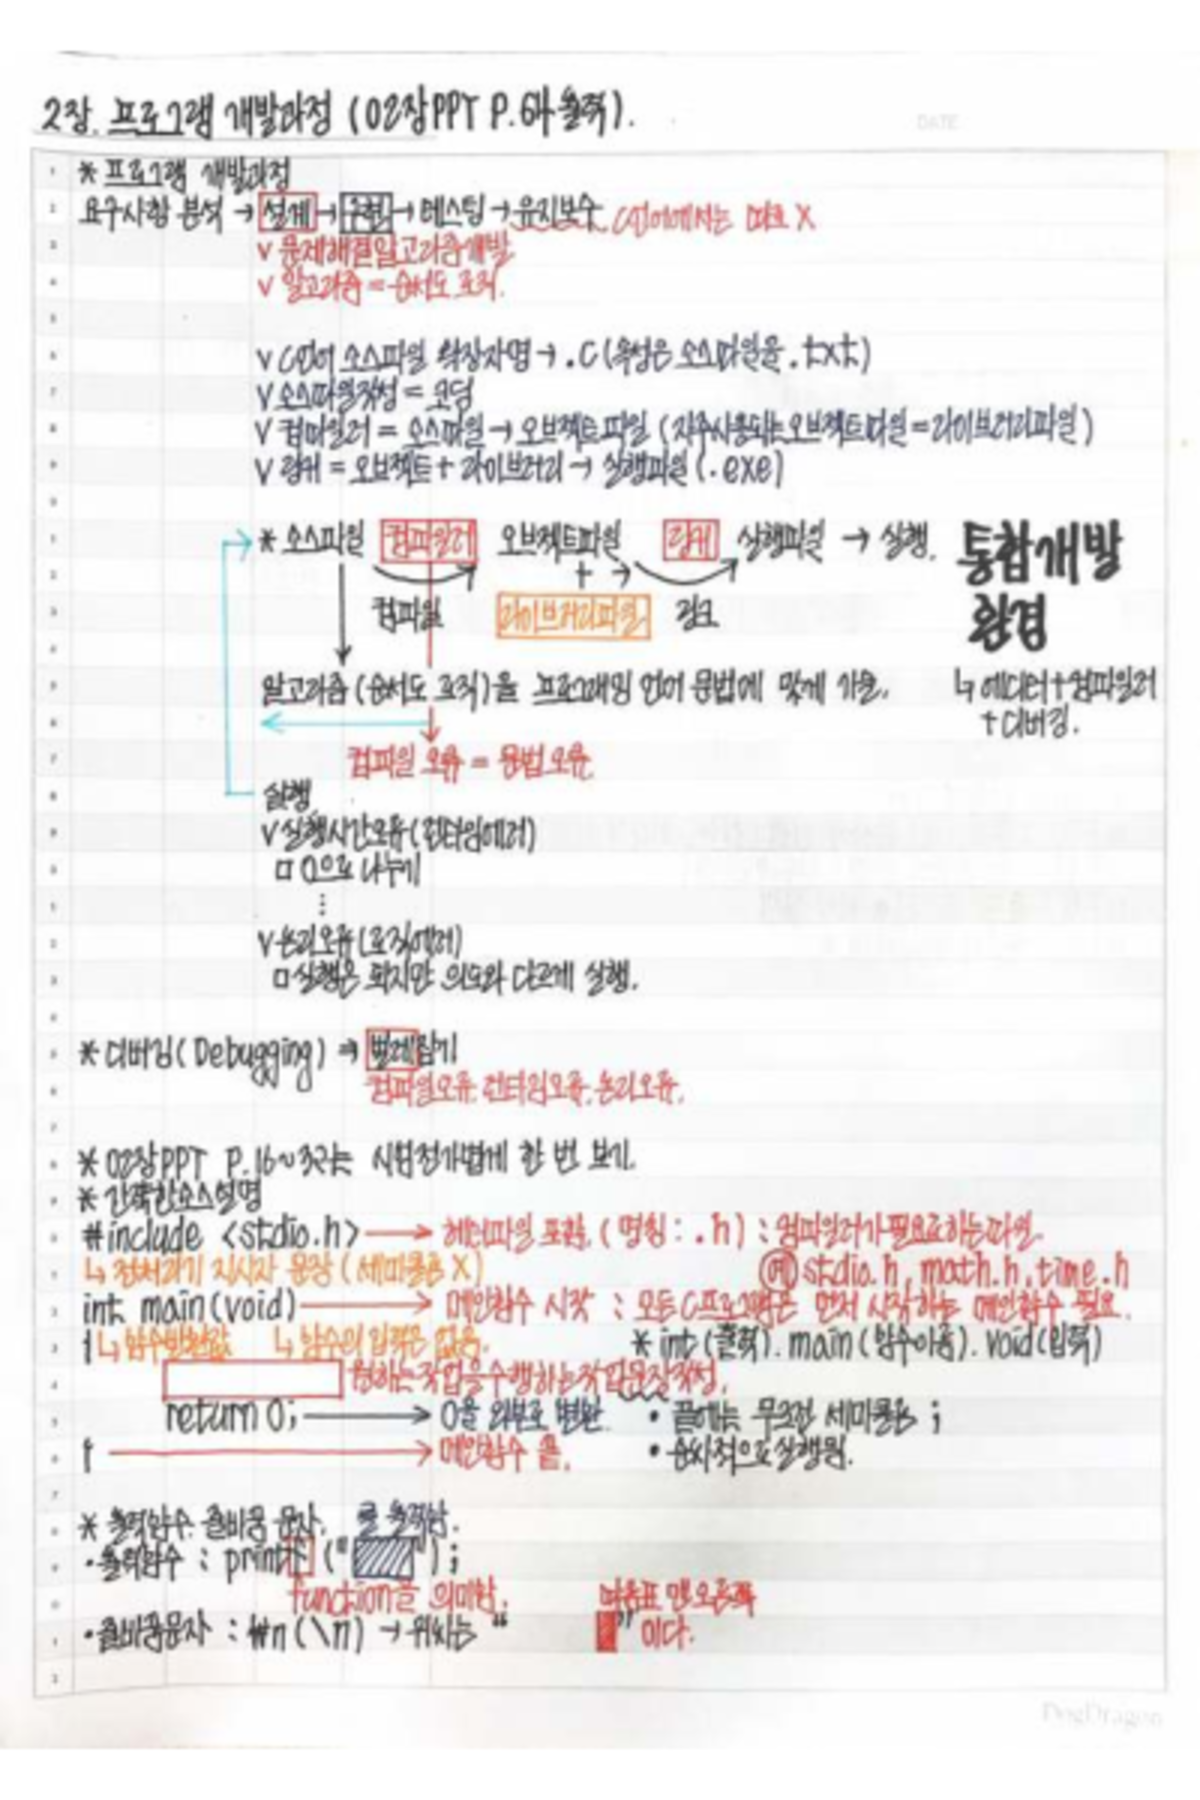 2장. 프로그램 개발과정 (02장PPT P.6과 출력).
DATE
* 프로그램 개발과정
요구사항 분석 → 설계 → 구현 → 테스팅 → 유지보수 C언어에서는 필요 X
v 문제해결알고리즘개발
v 알고리즘 = 순서도 로직.
v C언어 소스파일 확장자명 → .C (속성은 소스파일을 .txt)
v 소스파일작성 = 코딩
v 컴파일러 = 소스파일 → 오브젝트파일 (자주사용되는오브젝트파일=라이브러리파일)
v 링커 = 오브젝트 + 라이브러리 → 실행파일 (.exe)
* 소스파일 컴파일러 오브젝트파일 링커 실행파일 → 실행. 통합개발
+ → 환경
컴파일 라이브러리파일 링크
알고리즘 (순서도 로직)을 프로그래밍 언어 문법에 맞게 기술. ↳ 에디터+컴파일러
+디버깅.
컴파일 오류 = 문법오류
실행
v 실행시간오류 (런타임에러)
□ 0으로 나누기
⋮
v 논리오류 (로직에러)
□ 실행은 되지만 의도와 다르게 실행.
* 디버깅 (Debugging) ⇒ 벌레잡기
컴파일오류, 런타임오류, 논리오류.
* 02장PPT P.16~32는 시험전가볍게 한 번 보기.
* 간략한소스설명
#include <stdio.h> → 헤더파일 포함. ( 명칭 : .h ) : 컴파일러가필요로하는파일
↳ 전처리기 지시자 문장 (세미콜론 X) 예 stdio.h, math.h, time.h
int main(void) → 메인함수 시작 : 모든C프로그램은 먼저 시작하는 메인함수 필요.
{ ↳ 함수반환값 ↳ 함수의 입력은 없음. * int (출력). main (함수이름). void (입력)
원하는작업을수행하는작업문장작성.
return 0; → 0을 외부로 변환 • 끝에는 무조건 세미콜론 ;
} → 메인함수 끝. • 순차적으로실행됨.
* 출력함수. 줄바꿈 문자. 를 출력함.
• 출력함수 : printf (" ") ;
function을 의미함. 따옴표 맨오른쪽
• 줄바꿈문자 : ₩n (\n) → 위치는 “ ” 이다.
DogDragon